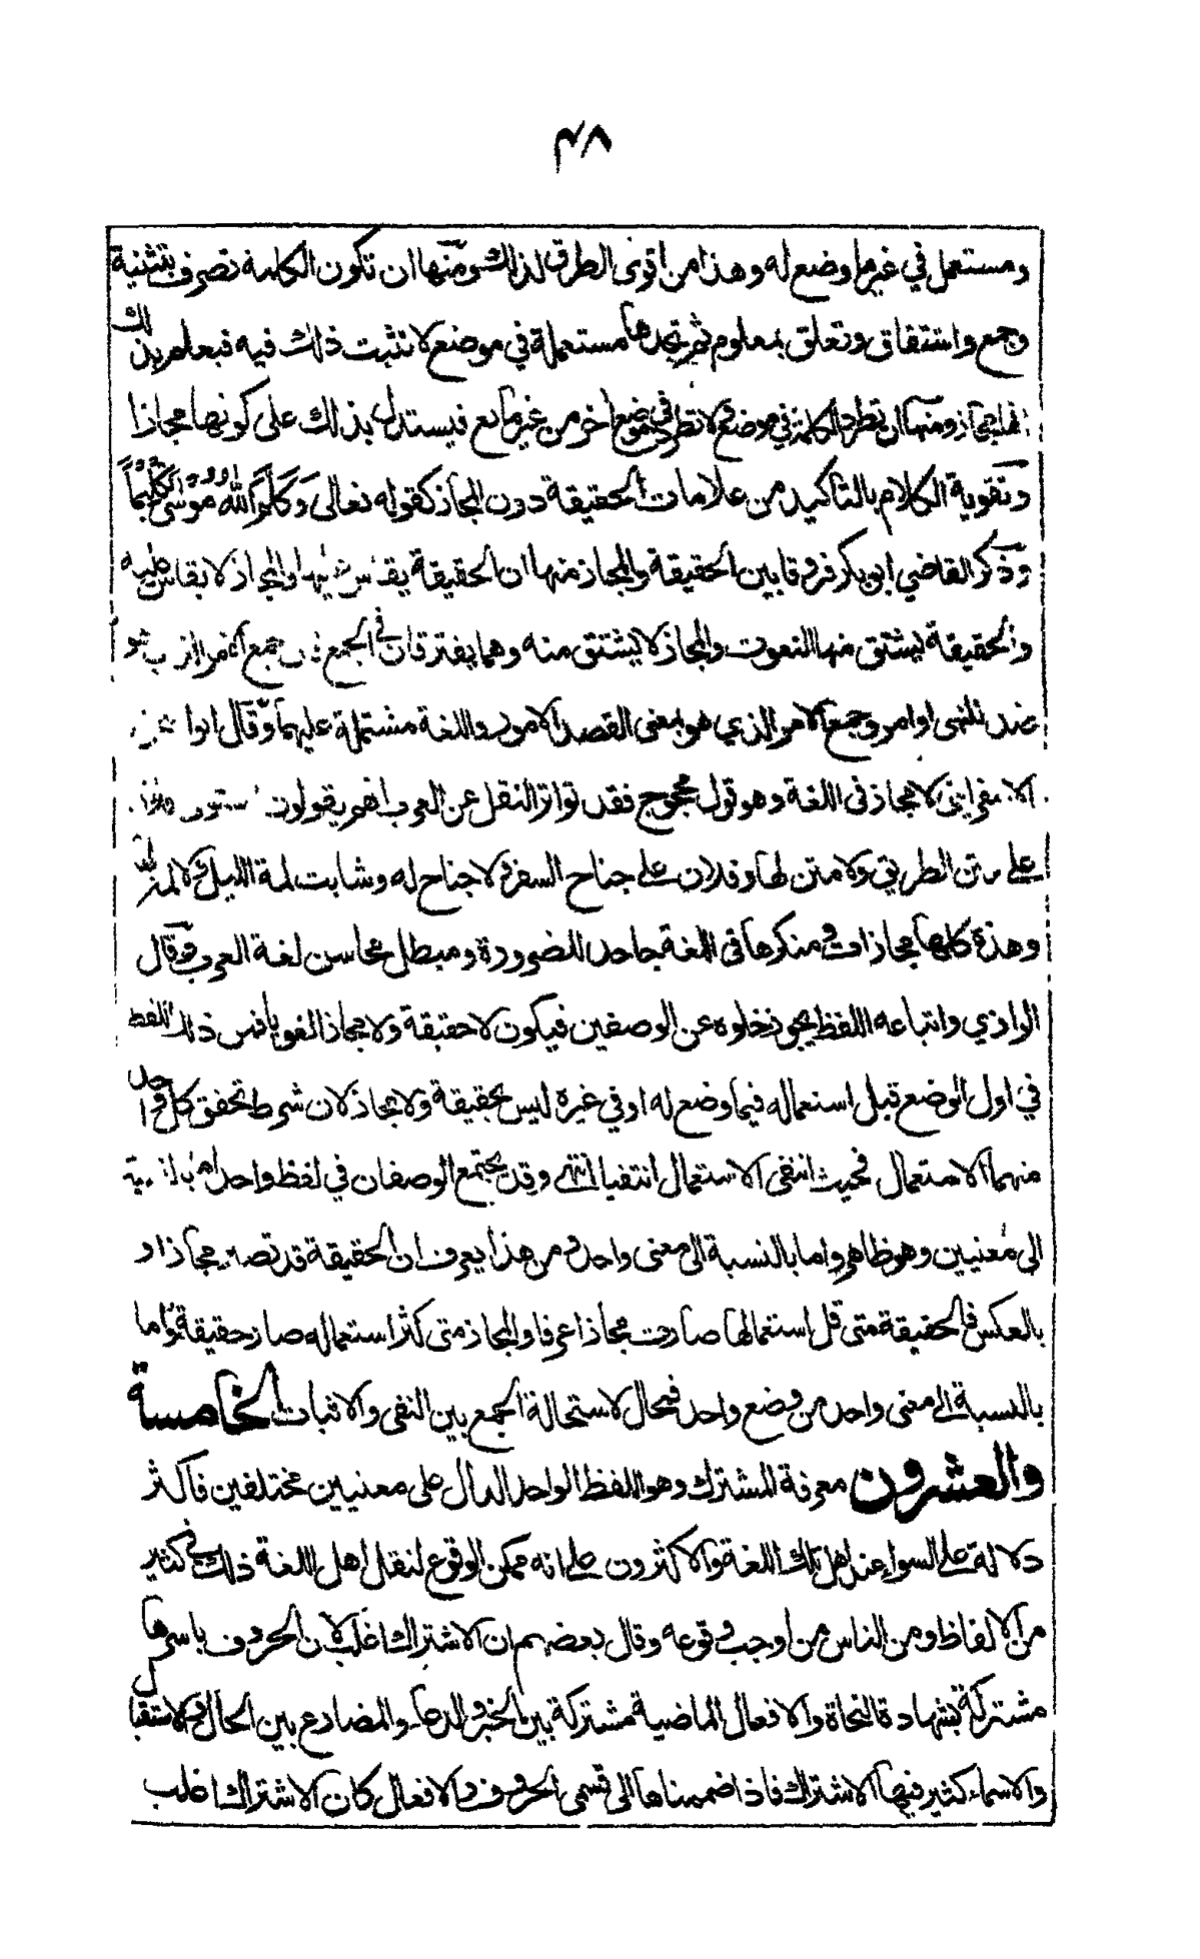 ٤٨
ومستعمل في غير ما وضع له وهذا من اقوى الطرق لذلك ومنها ان تكون الكلمة تصرف بتثنية
وجمع واشتقاق وتعلق بمعلوم ثم تجدها مستعملة في موضع لا تثبت ذلك فيه فيعلم بذلك
انها مجاز ومنها ان تطرد الكلمة في موضع ولا تطرد في موضع اخر من غير مانع فيستدل بذلك على كونها مجازا
وتقوية الكلام بالتأكيد من علامات الحقيقة دون المجاز كقوله تعالى وَكَلَّمَ اللهُ مُوْسَى تَكْلِيْمًا
وذكر القاضي ابو بكر فروقا بين الحقيقة والمجاز منها ان الحقيقة يقاس عليها والمجاز لا يقاس عليه
والحقيقة يشتق منها النعوت والمجاز لا يشتق منه وهما يفترقان في الجمع جمع
ضد النهى اوامر وجمع الامر الذي هو بمعنى القصد الامور واللغة مشتملة عليهما وقال
الاسفراينى لا مجاز فى اللغة وهو قول محجوج فقد تواتر النقل عن العرب انهم يقولون
على متن الطريق ولا متن لها وفلان على جناح السفر ولا جناح له وشابت لمة الليل ولا لمة لليل
وهذه كلها مجازات ومنكرها فى اللغة جاحد للضرورة ومبطل محاسن لغة العرب وقال
الرازي واتباعه اللفظ يجوز خلوه عن الوصفين فيكون لا حقيقة ولا مجازا لغويا فمن ذلك اللفظ
في اول الوضع قبل استعماله فيما وضع له او في غيره ليس بحقيقة ولا مجاز لان شرط تحقق كل واحد
منهما الاستعمال فحيث انتفى الاستعمال انتفيا انتهى وقد يجتمع الوصفان في لفظ واحد اما بالنسبة
الى معنيين وهو ظاهر واما بالنسبة الى معنى واحد ومن هذا يعرف ان الحقيقة قد تصير مجازا و
بالعكس فالحقيقة متى قل استعمالها صارت مجازا عرفا والمجاز متى كثر استعماله صار حقيقة واما
بالنسبة الى معنى واحد من وضع واحد فمحال لاستحالة الجمع بين النفى والاثبات الخامسة
والعشرون معرفة المشترك وهو اللفظ الواحد الدال على معنيين مختلفين فاكثر
دلالة على السواء عند اهل تلك اللغة والاكثرون على انه ممكن الوقوع لنقل اهل اللغة ذلك في كثير
من الالفاظ ومن الناس من اوجب وقوعه وقال بعضهم ان الاشتراك اغلب لان الحروف باسرها
مشتركة بشهادة النحاة والافعال الماضية مشتركة بين الخبر والدعاء والمضارع بين الحال والاستقبال
والاسماء كثير فيها الاشتراك فاذا ضممناها الى قسمى الحروف والافعال كان الاشتراك اغلب